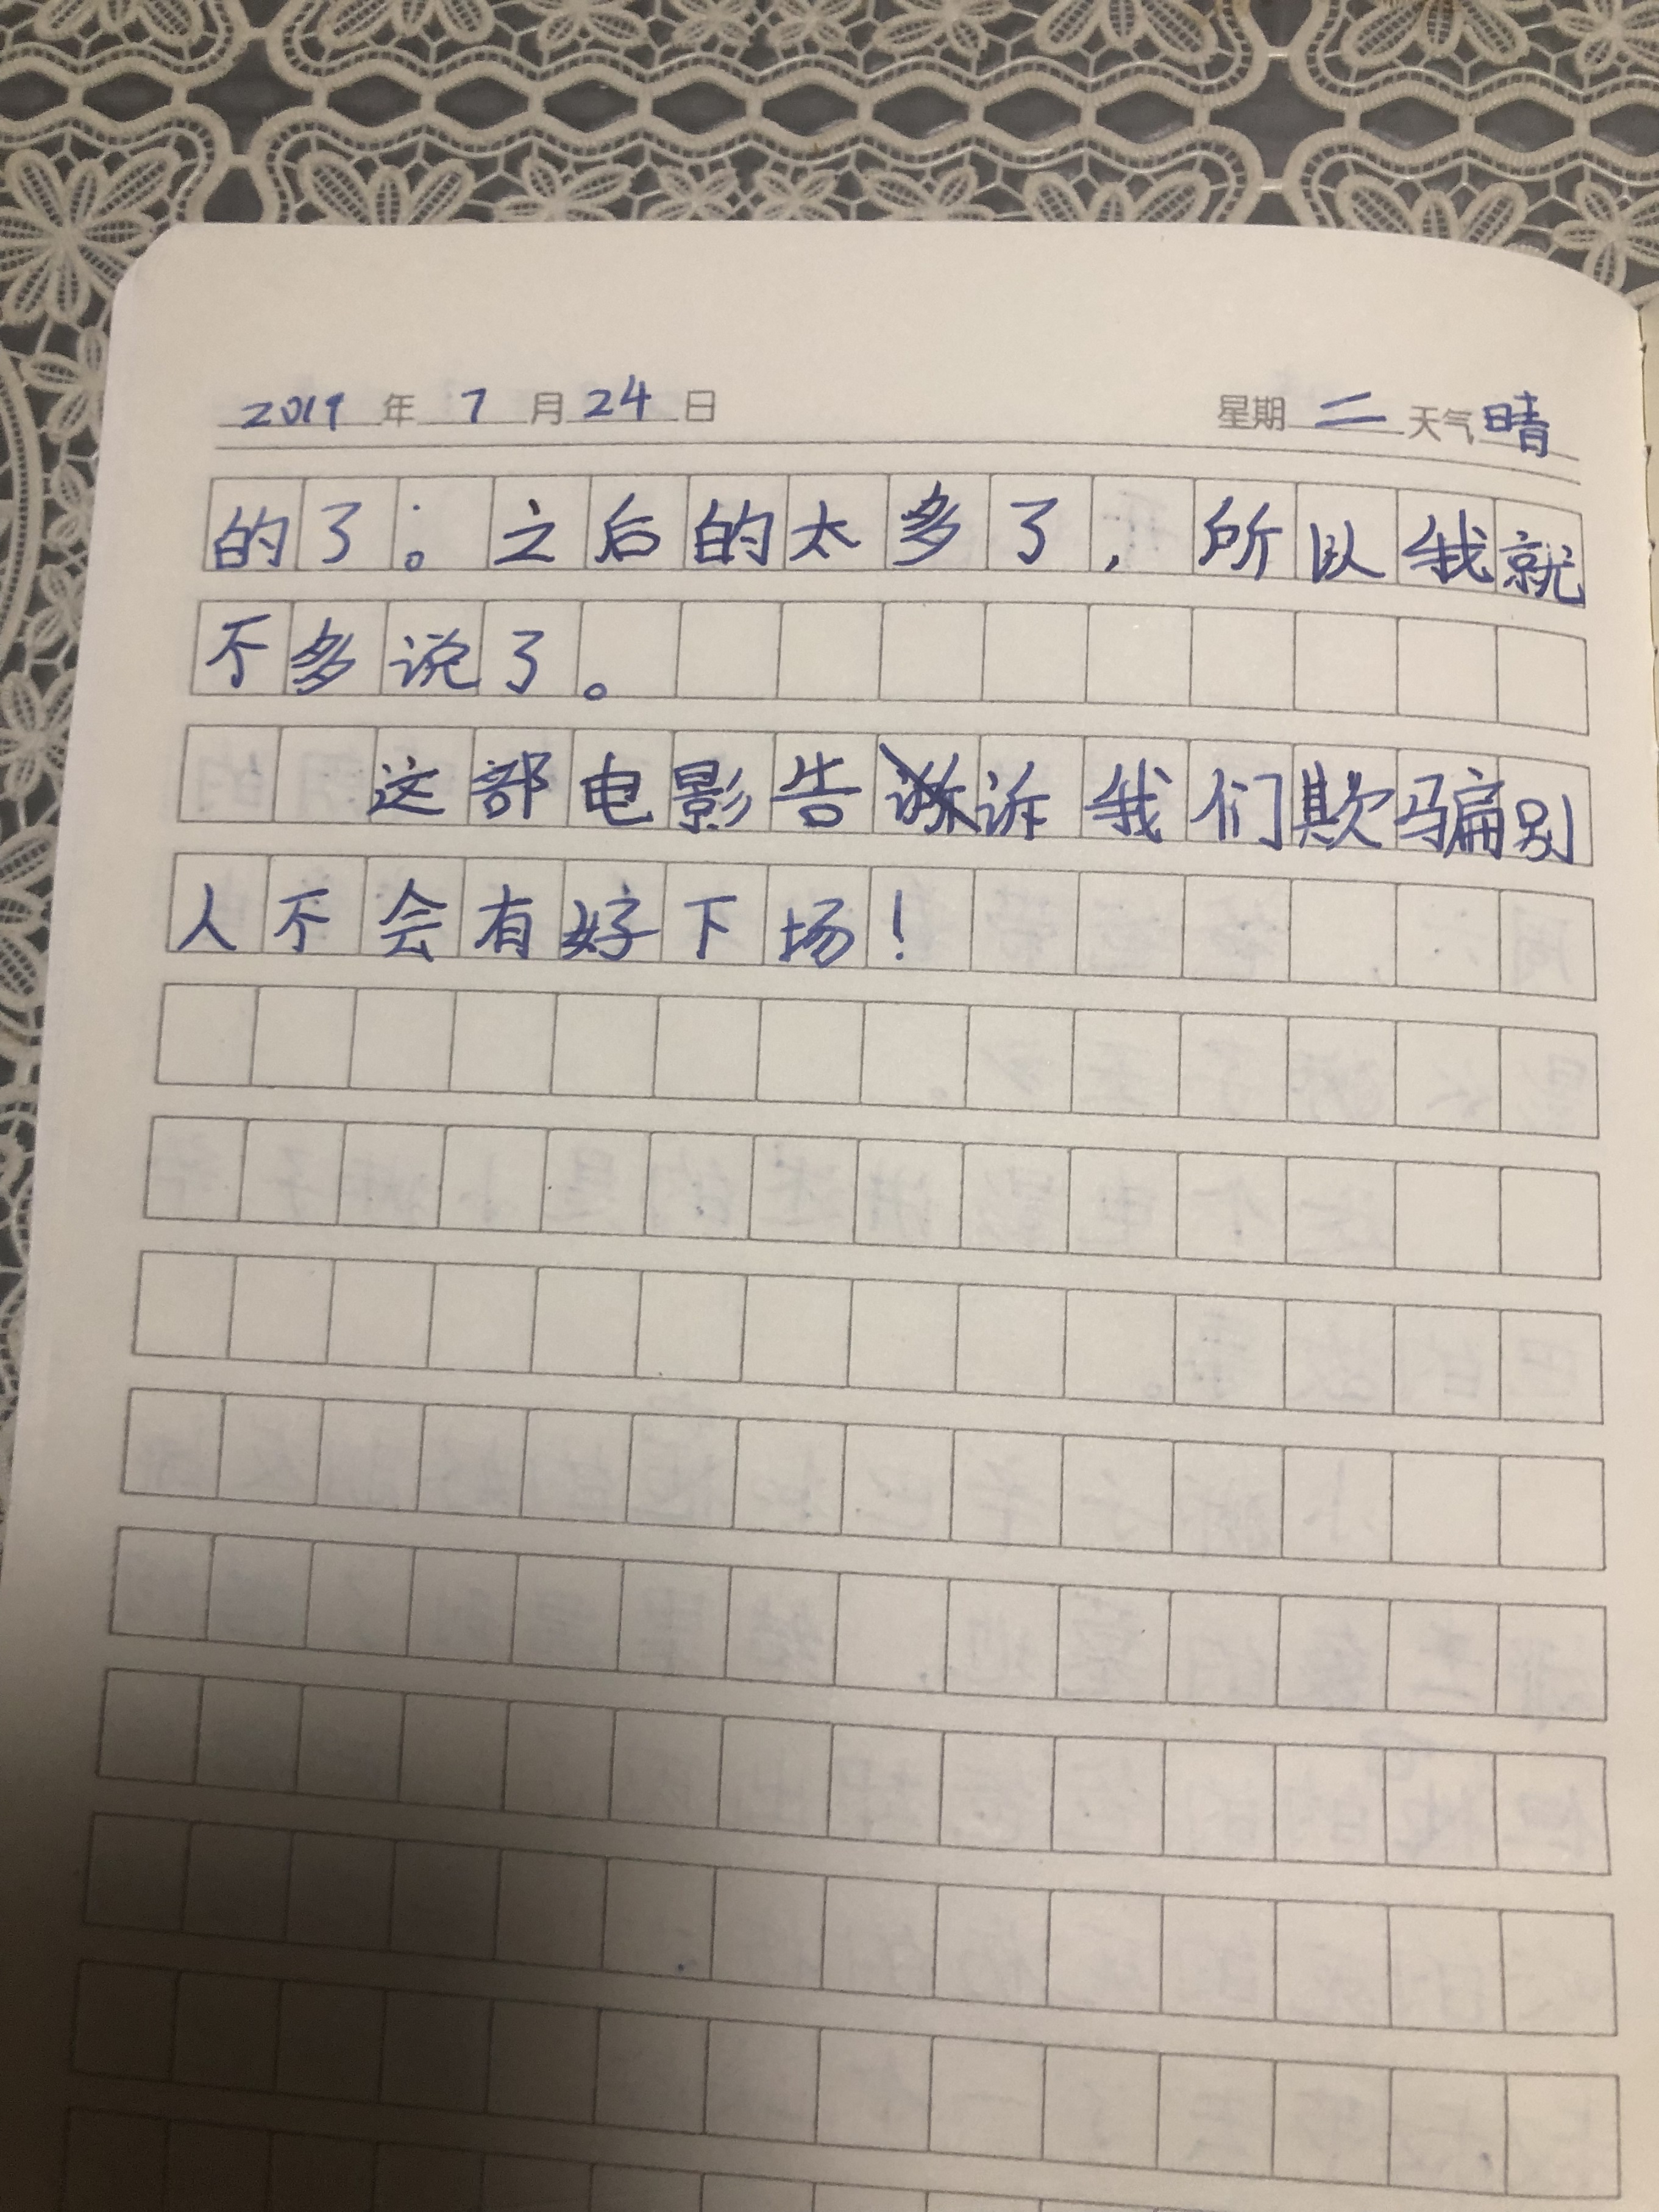 2019年7月24日 星期二 天气晴
的了。之后的太多了，所以我就
不多说了。
这部电影告诉我们欺骗别
人不会有好下场！